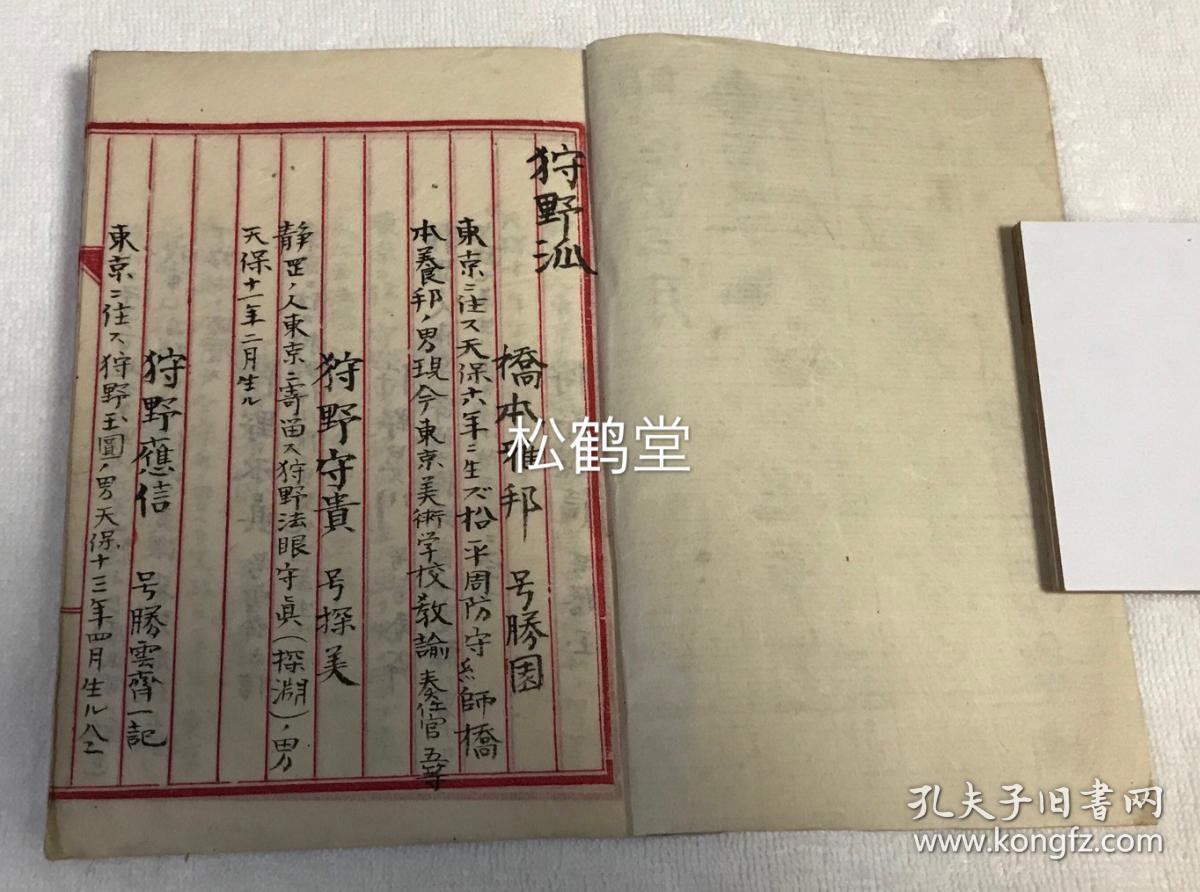 狩野派
橋本雅邦 号勝園
東京ニ住ス天保六年ニ生ズ松平周防守糸師橋
本養邦ノ男現今東京美術学校教諭 奏任官五等
狩野守貴 号探美
静岡ノ人東京ニ寄留ス狩野法眼守眞(探淵)ノ男
天保十一年二月生ル
狩野應信 号勝雲齊一記
東京ニ住ス狩野玉圓ノ男天保十三年四月生ル
松鹤堂
孔夫子旧书网
www.kongfz.com